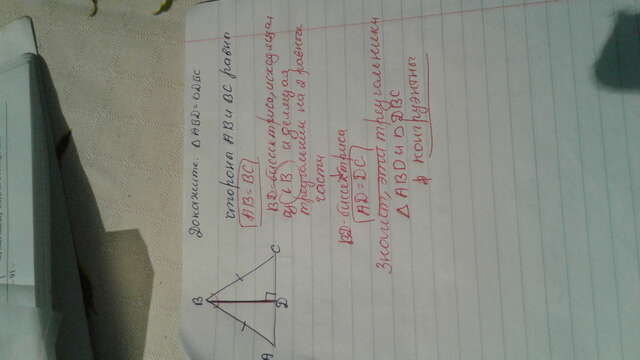 - 91 -
B
Докажите: △ABD=△DBC
стороны AB и BC равны
AB=BC
A
D
C
BD-биссектриса, исходящая
из (∠B) и делящая
треугольник на 2 равные
части
BD-биссектриса
AD=DC
Значит, эти треугольники
△ABD и △DBC
конгруэнтны